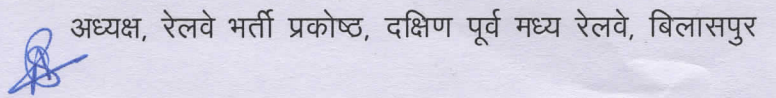 अध्यक्ष, रेलवे भर्ती प्रकोष्ठ, दक्षिण पूर्व मध्य रेलवे, बिलासपुर